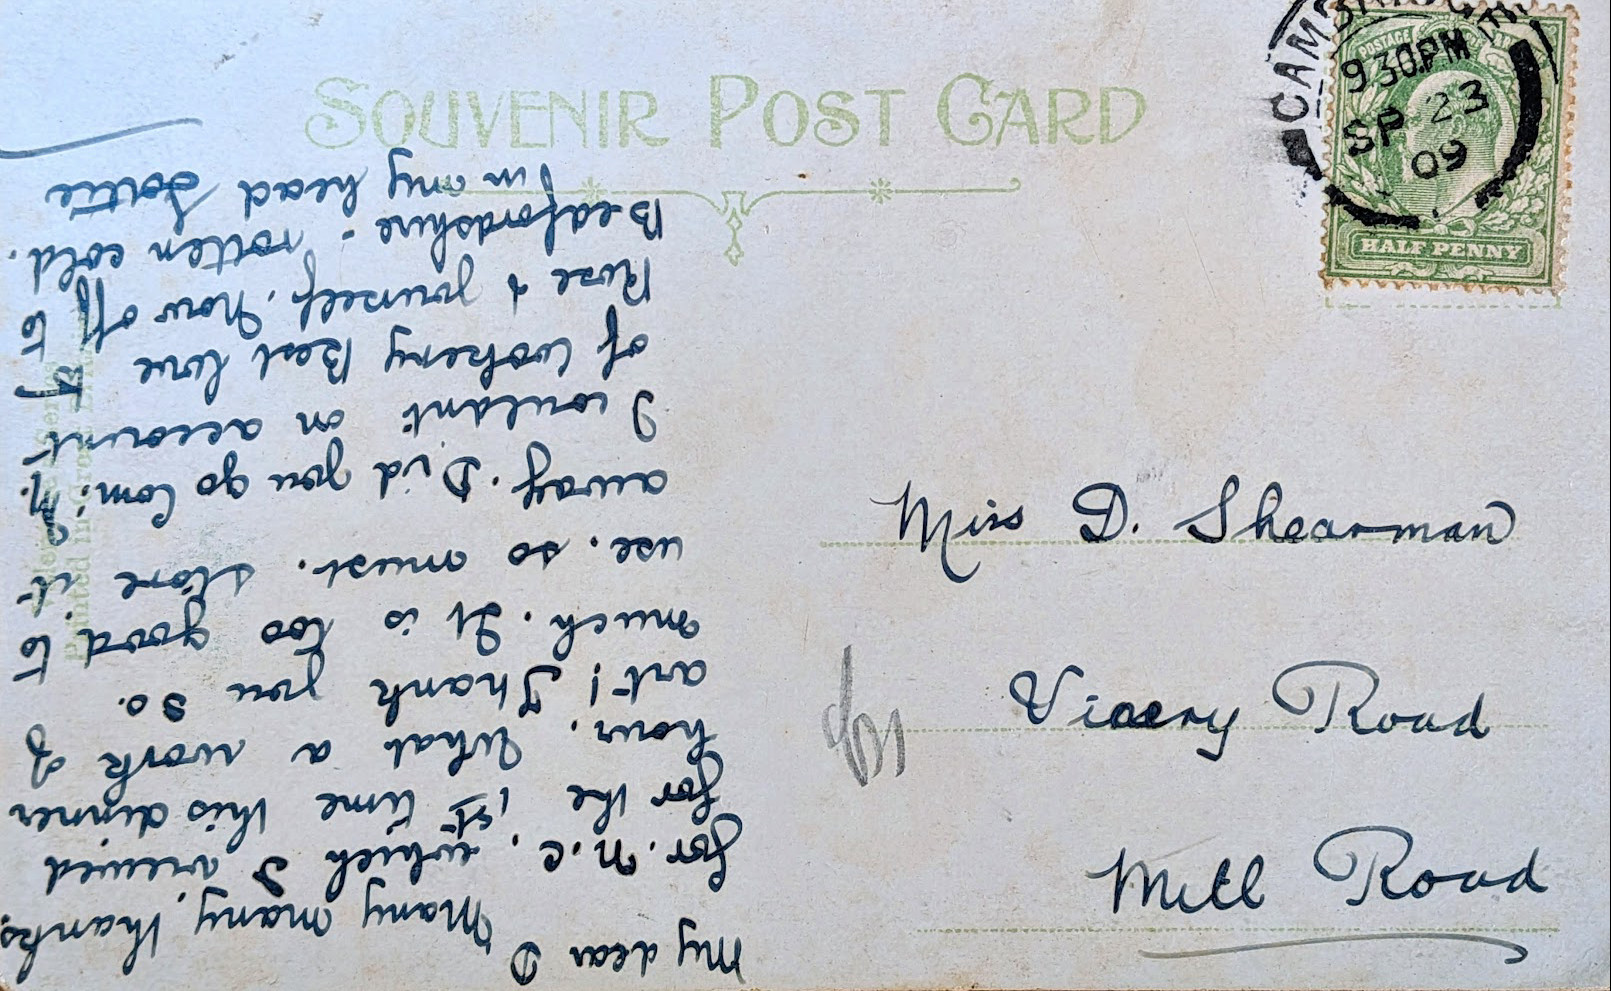 SOUVENIR POST CARD
CAMBRIDGE
9 30 PM
SP 23
09
POSTAGE
HALF PENNY
Miss D. Shearman
Road
Mill Road
My dear D
Many, many, thanks,
for. N.C., which I viewed
for the 1st time this dinner
hour. What a work of
art! Thank you so.
much. It is too good to
use. so must. store it
away. Did you go Com: N. ?
I couldn't on account
of cookery Best love to
Rose & yourself. Now off to
Bedfordshire - rotten cold.
in my head Dottie
Printed in